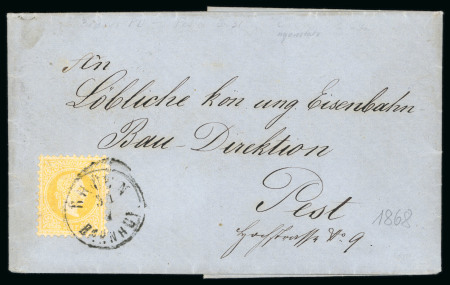 An
Löbliche kön ung Eisenbahn
Bau-Direktion
Pest
1868
Hochstrasse No 9.
BRÜNN
BAHNHOF